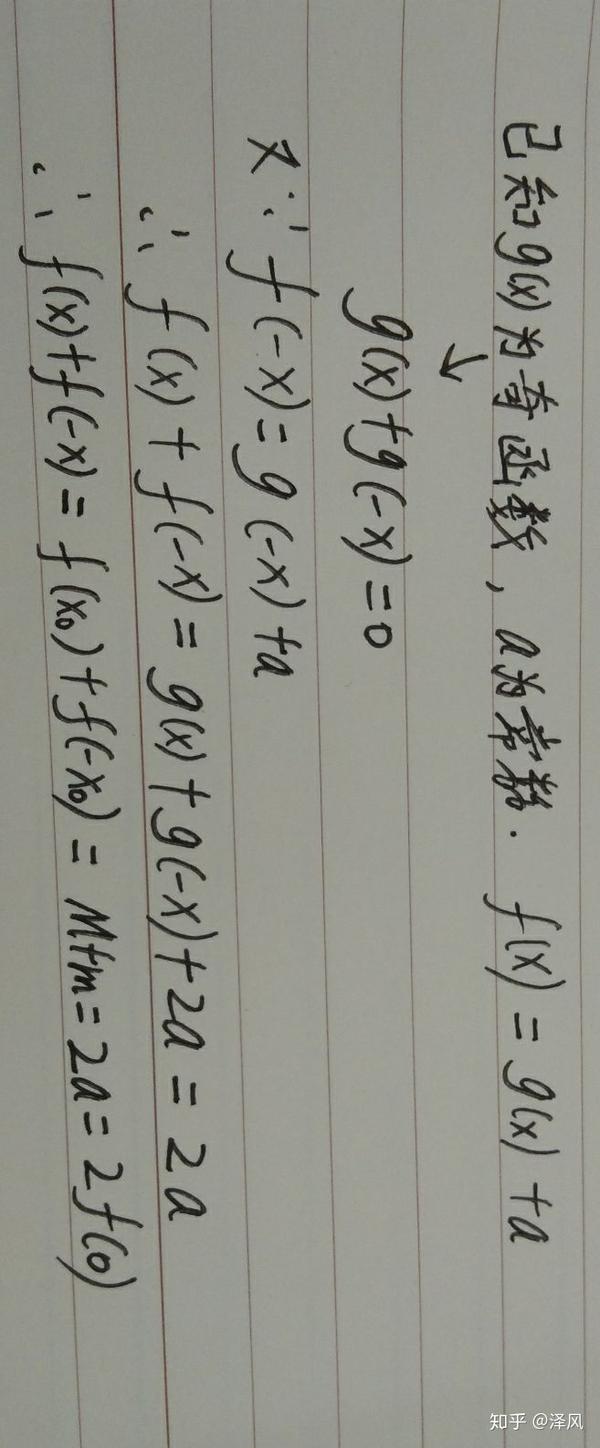 已知g(x)为奇函数，a为常数． f(x)=g(x)+a
↓
g(x)+g(-x)=0
又∵f(-x)=g(-x)+a
∴f(x)+f(-x)=g(x)+g(-x)+2a=2a
∴f(x)+f(-x)=f(x₀)+f(-x₀)=M+m=2a=2f(0)
知乎 @泽风